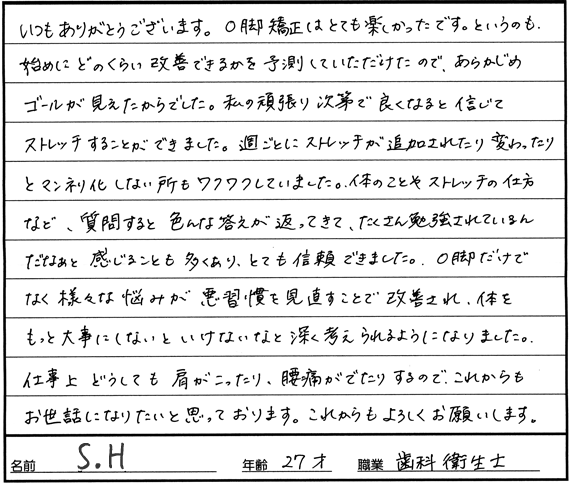 いつもありがとうございます。O脚矯正はとても楽しかったです。というのも、
始めにどのくらい改善できるかを予測していただけたので、あらかじめ
ゴールが見えたからでした。私の頑張り次第で良くなると信じて
ストレッチすることができました。週ごとにストレッチが追加されたり変わったり
とマンネリ化しない所もワクワクしていました。体のことやストレッチの仕方
など、質問すると色んな答えが返ってきて、たくさん勉強されているん
だなぁと感じることも多くあり、とても信頼できました。O脚だけで
なく様々な悩みが悪習慣を見直すことで改善され、体を
もっと大事にしないといけないなと深く考えられるようになりました。
仕事上どうしても肩がこったり、腰痛がでたりするので、これからも
お世話になりたいと思っております。これからもよろしくお願いします。
名前 S.H 年齢 27才 職業 歯科衛生士